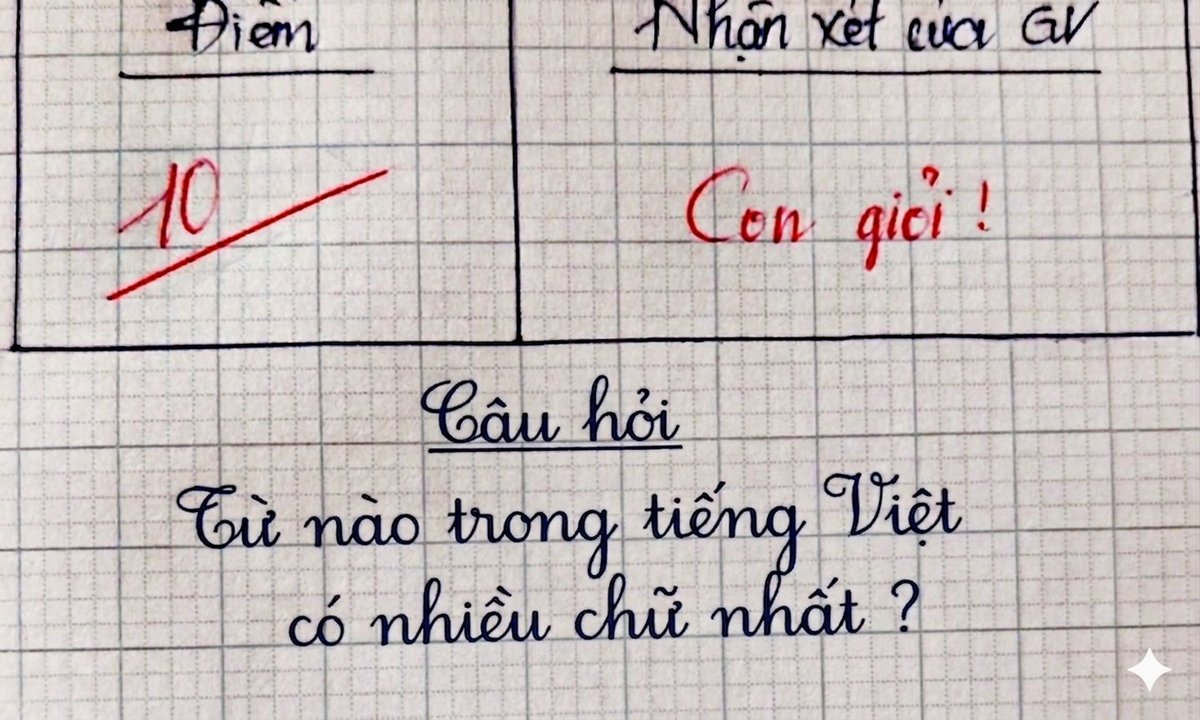 Điểm
Nhận xét của GV
10
Con giỏi !
Câu hỏi
Từ nào trong tiếng Việt
có nhiều chữ nhất ?